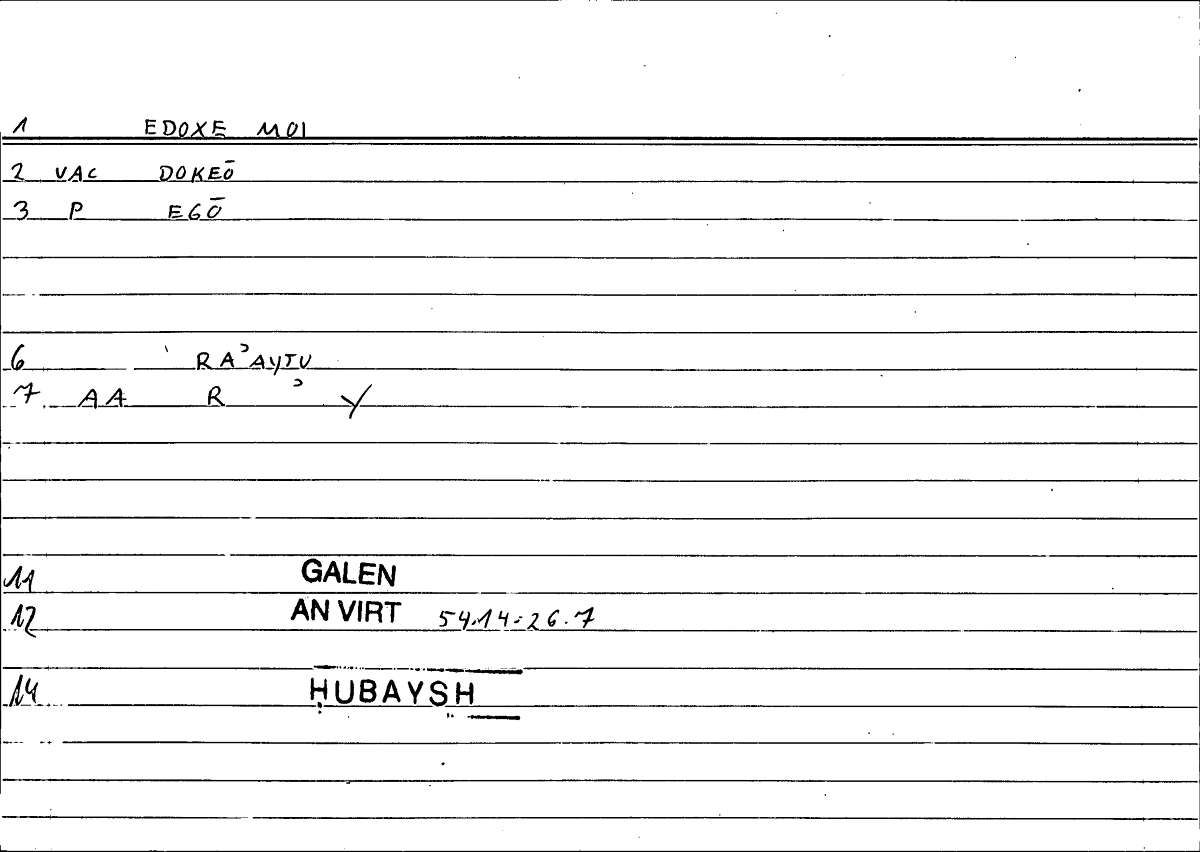 1 EDOXE MOI
2 VAC DOKEŌ
3 P EGŌ
6 RAʾAYTU
7 AA R ʾ Y
11 GALEN
12 AN VIRT 54.14:26.7
14 ḤUBAYSH